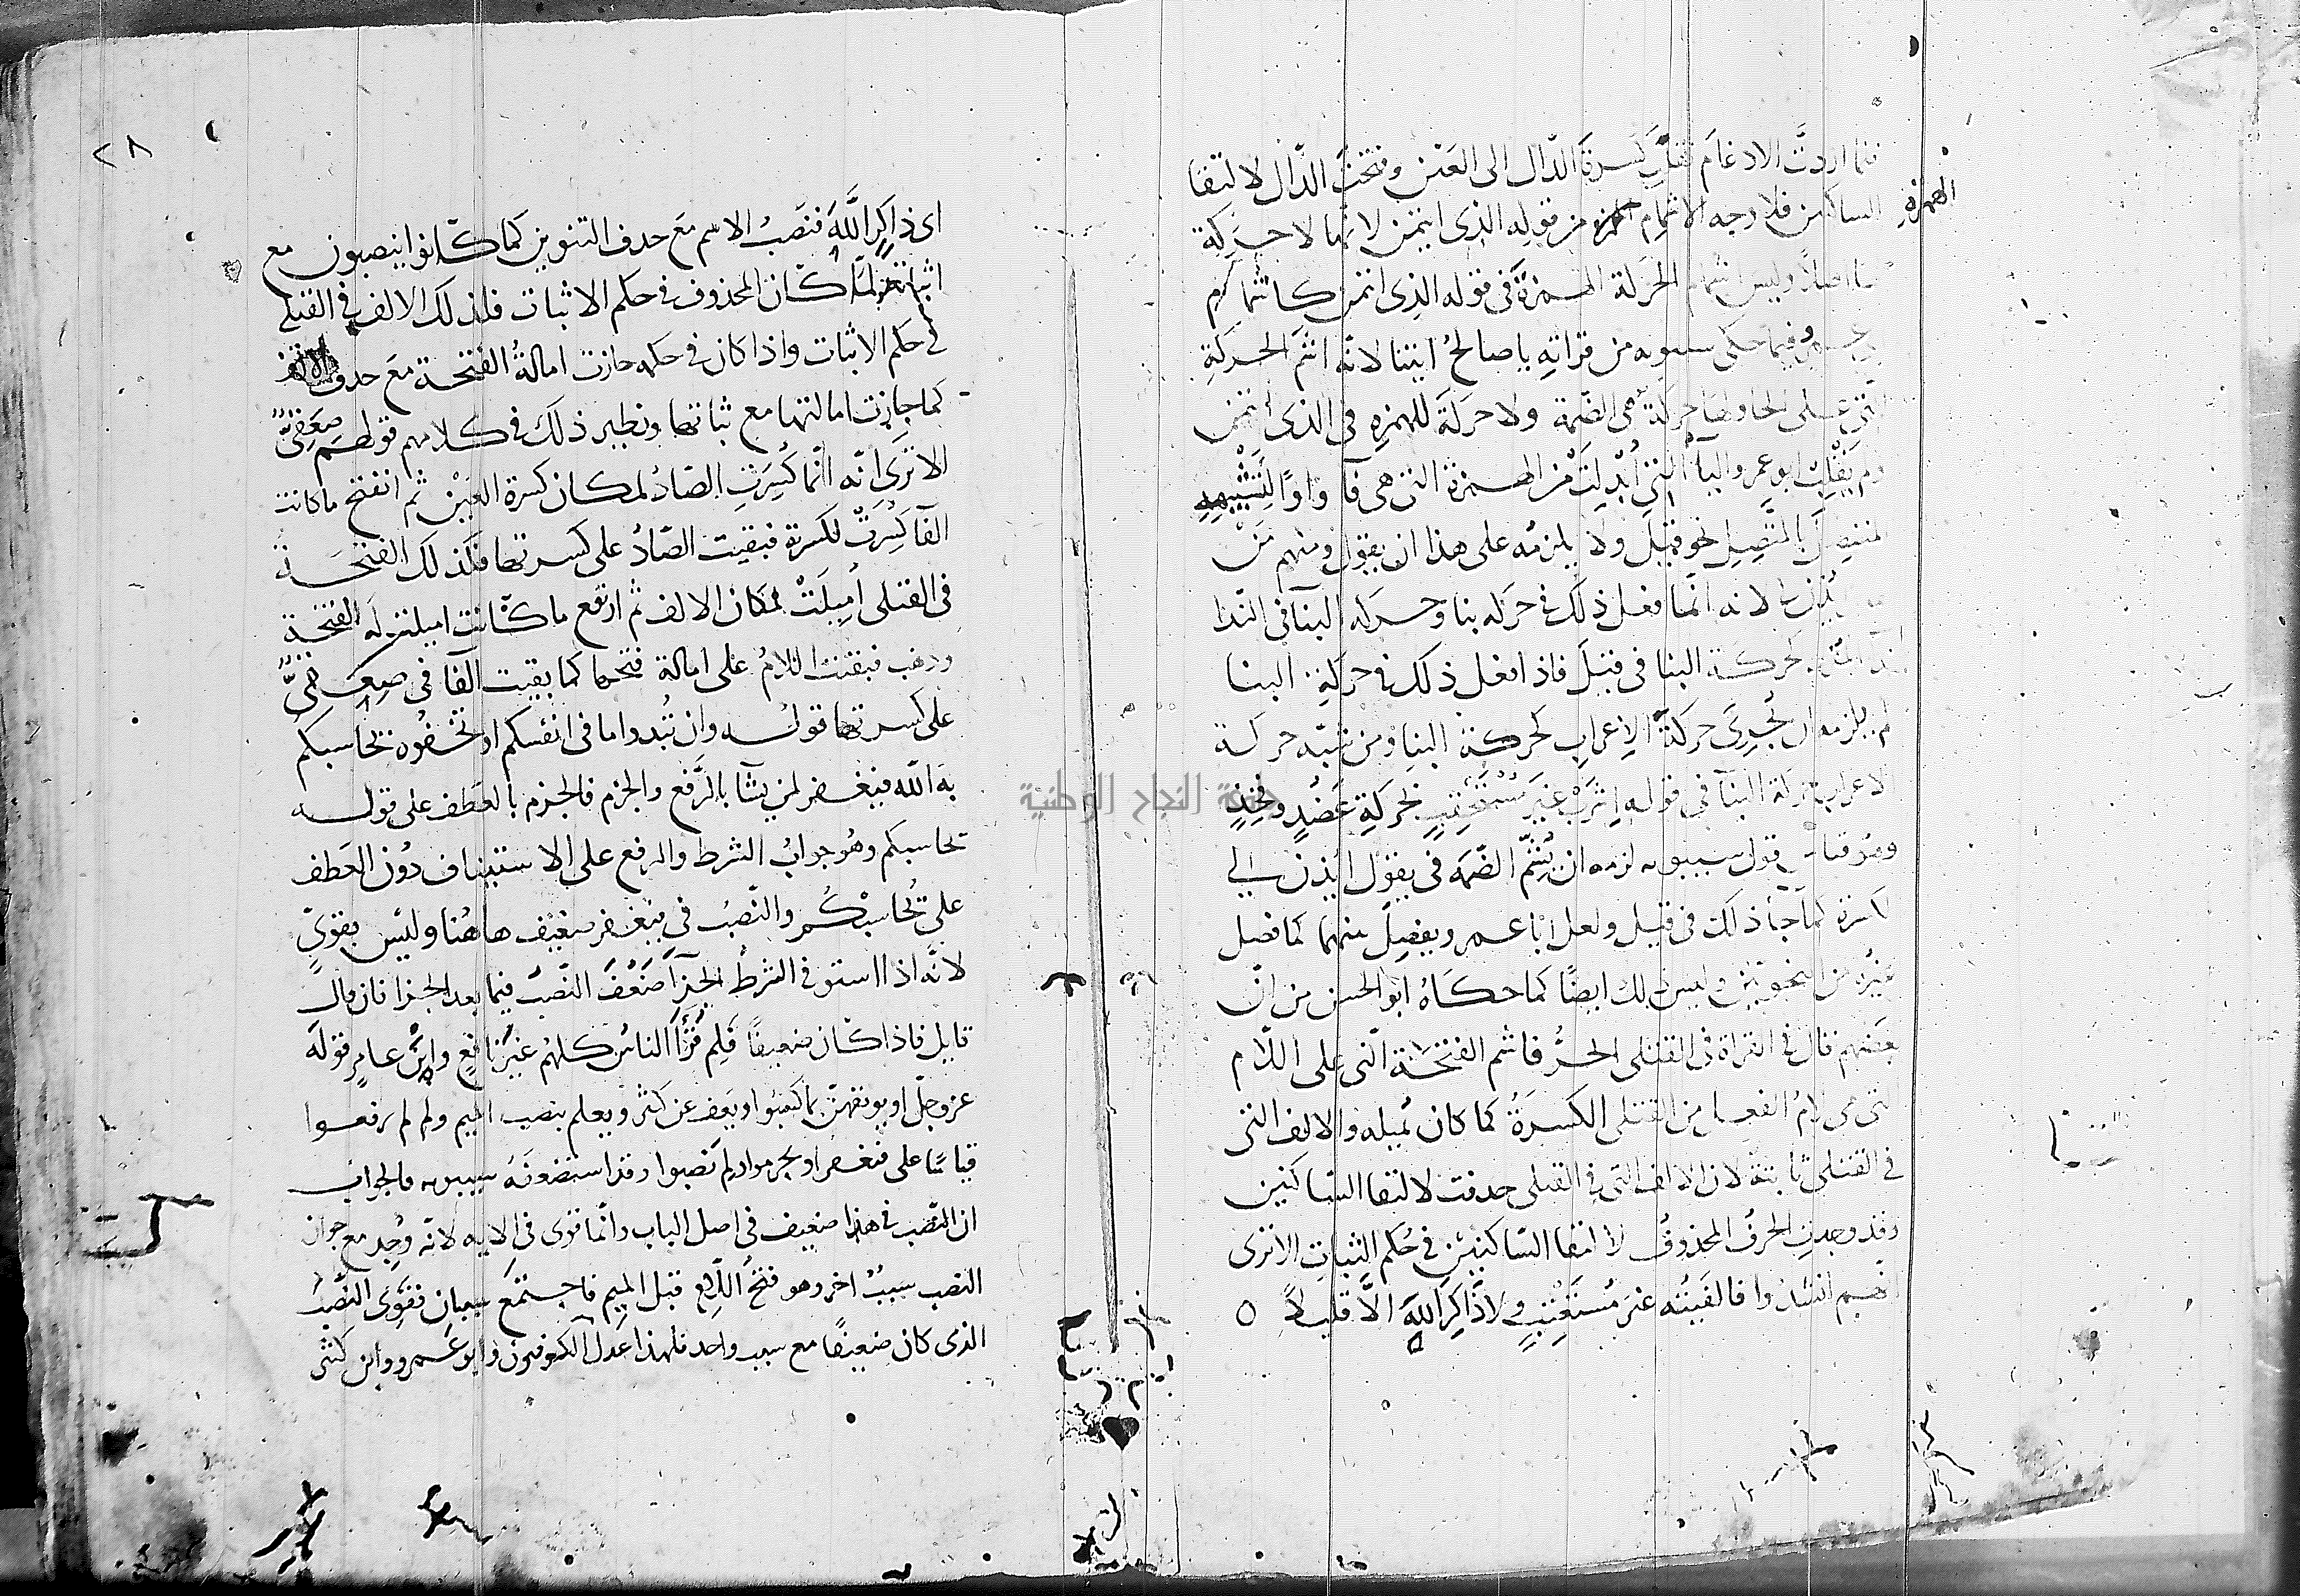 فلما اردتَّ الادغام نقلت كسرة الدّال الى العين وفتحتَ الدّال لالتقا
الساكنين فلا وجه لاشمام الهمزة من قوله الذى ايتمن لانها لا حركة
الهمزة
اصلًا وليس اشمام الحركة الهمزة فى قوله الذى ايتمن كاشمام
فيما حكى سيبويه من قراته يا صالحُ ايتنا لانه اشم الحركة
التى على الحا ولها حركة هى الضّمة ولا حركة للهمزه فى الذى ايتمن
ولم يقلب ابو عمرو اليا التى اُبْدِلَتْ من الهمزة التى هى فا واوًا لتشبيهه
المنفصل بالمتّصل نحو قيل ولا يلزمه على هذا ان يقول ومنهم مَن
لانه انّما فعل ذلك فى حركه بنا وحركه البنا فى النّدا
لحركة البنا فى قيل فاذا فعل ذلك فى حركة البنا
لم يلزمه ان يُجرىَ حركة الاعراب كحركة البنا ومن شبّه حركة
الاعراب بحركة البنا فى قوله اشْرَبْ غيرَ مُسْتَحْقِبٍ بحركةِ عَضُدٍ وفَخِذٍ
قول سيبويه لزمه ان يُشِمّ الضّمه فى يقول ايذن لي
الكسرة كما جا ذلك فى قيل ولعل ابا عمرو يفصِل بينهما كما فصل
غيرُه من النحويّين وليس ذلك ايضًا كما حكاهُ ابو الحسن من انّ
بعضهم قال فى القراة فى القتلى الحرُّ فاشم الفتحَة التى على اللّام
التى هى لامُ الفعل من القتلى الكسرَةُ كما كان يُميله والالف التى
فى القتلى ثابتة لان الالف التى فى القتلى حذفت لالتقا السّاكنين
وقد وجدت الحرفُ المحذوفُ لالتقا السّاكنين فى حُكم الثبات الا ترى
انهم انشدُوا فالفَيتُه غيرَ مُستَعْتِبٍ ولا ذَاكِرَ اللهَ الَّا قليلًا
٢٨
اى ذاكرٍ اللَّهَ فنَصَبُ الاسم مَعَ حذف التنوين كما كانوا ينصبون مع
اثباته لمّا كان المحذوف فى حكم الاثبات فلذلك الالف فى القتلى
فى حكم الاثبات واذا كان فى حكمه جازت امالةُ الفتحة مَعَ حذف الالف
كما جازت امالتها مع ثباتها ونظير ذلك فى كلامهم قولهم صِعِقِىٌّ
الا ترى انّه انّما كُسِرَتِ الصّادُ لمكان كسرة العَيْن ثم انفتح ما كانت
الفا كُسِرَتْ لكسرته فبقيت الصّادُ على كسرتها فكذلك الفتحَة
فى القتلى اُمِيلَتْ لمكان الالف ثم ارتفع ما كانت اميلت له الفتحة
وذهب فبقيت اللامُ على امالة فتحها كما بقيت الفا فى صِعِقِىٌّ
على كسرتها قولــه وان تُبدوا ما فى انفسكم او تُخفُوه يحاسبكم
به الله فيغفر لمن يشآ بالرَّفع والجزم فالجزم بالعطف على قولــه
يحاسبكم وهُو جوابُ الشرط والرفع على الاستيناف دُون العَطف
على يُحاسبْكم والنّصبُ فى فيَغفر ضعيف هاهُنا وليْس بقوىّ
لانّه اذا استوفى الشرطُ الجزآ ضَعُفَ النّصبُ فيما بعد الجزا فان قال
قايل فاذا كان ضعيفًا فَلِمَ قَرَأ الناسُ كلهُم غيرَ نافع وابْن عامرٍ قولَهُ
عز وجلّ او يوبقهنّ بما كسَبُوا ويعف عن كثير ويعلم بنصب الميم ولم لم يرفعوا
قياسًا على فيغفر او يجزموا ولم نصبوا وقد استضعفَهُ سيبويه فالجواب
ان النّصب فى هذا ضعيف فى اصل الباب وانّما قوى فى الايه لانّه وُجد مع جواز
النصب سببٌ اخر وهو فتحُ اللّام قبل الميم فاجتمعَ سببان فقوِىَ النَّصبُ
الذى كان ضعيفًا مع سبب واحد فلهذا عدل الكوفيون وابو عَمرو وابن كثير
جامعة النجاح الوطنية